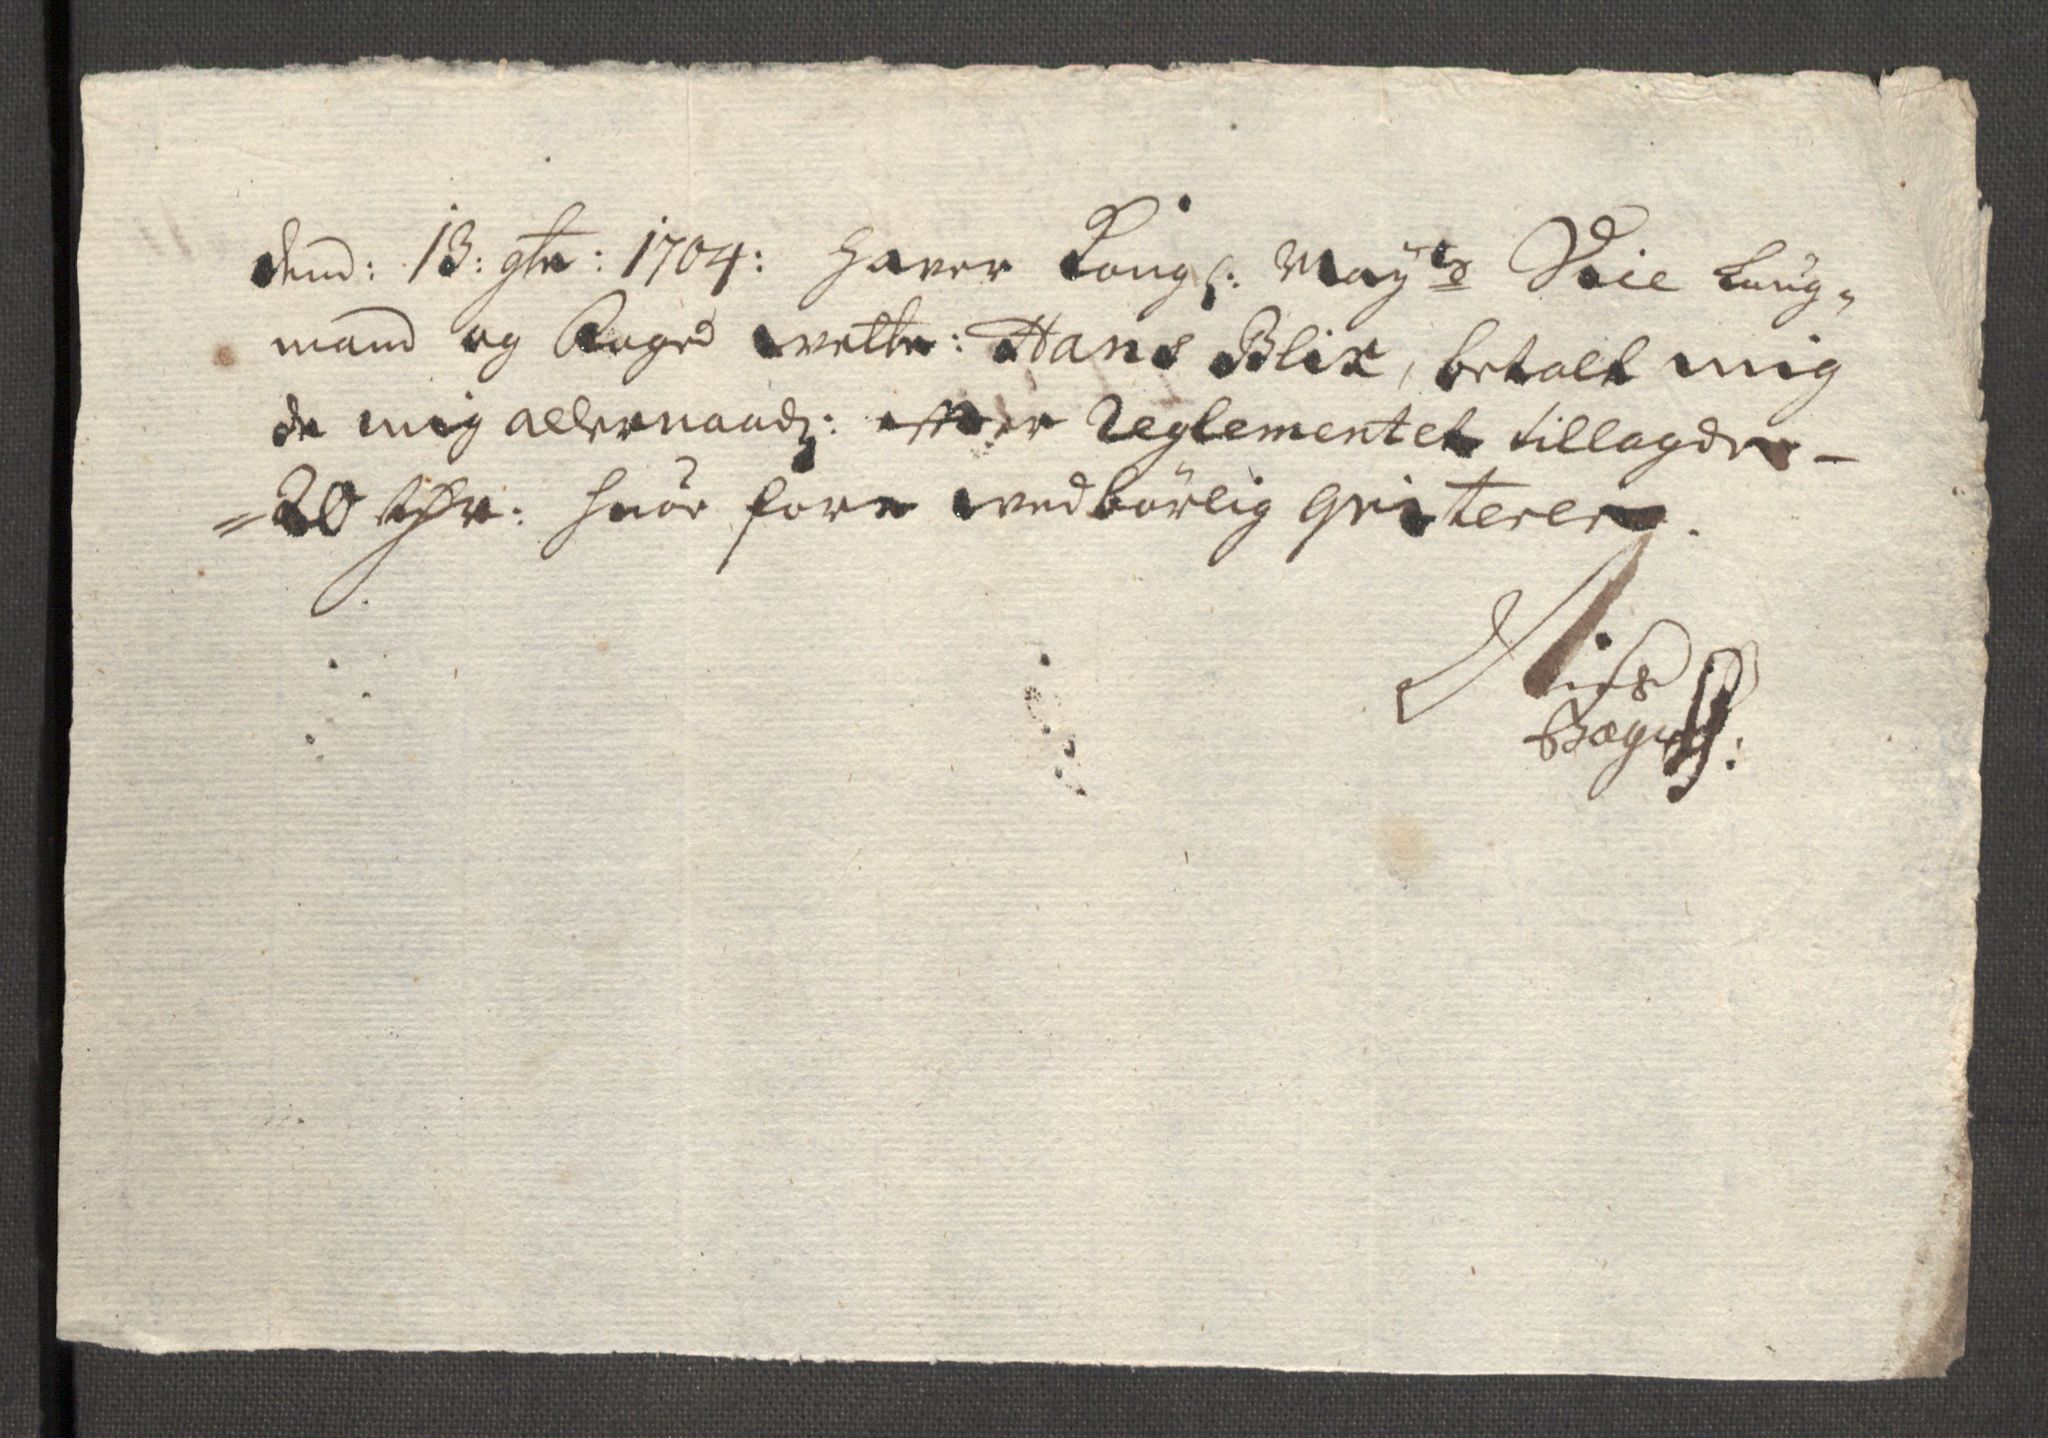 dend: 13: 9br: 1704: haver Kongl: Mayts Vice Laug=
mand og Foged Velbr: Hans Blix, betalt mig
de mig allernaadg: efter Reglementet tillagde -
= 20 Rdr: huor fore vedbörlig qviterer.
Niels